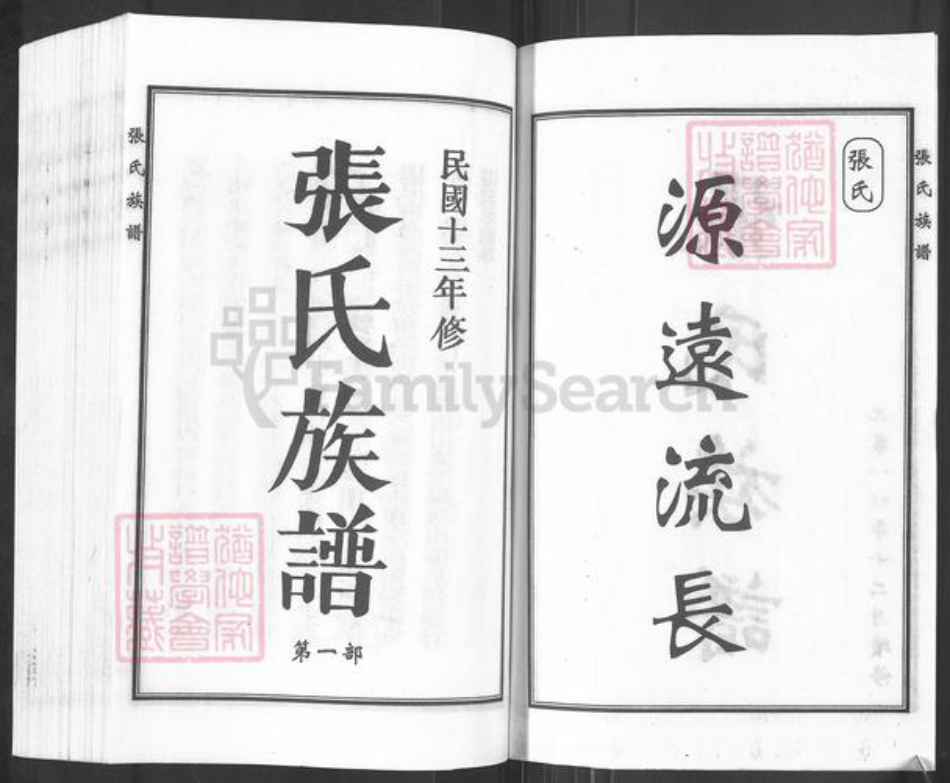 張氏族譜
張氏
源遠流長
民國十三年修
張氏族譜
第一部
張氏族譜
FamilySearch
猶他家
譜學會
收藏
猶他家
譜學會
收藏